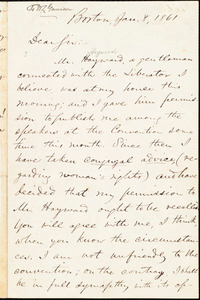 Boston Jan. 8, 1861
Dear Sir:
Mr. Hayward, a gentleman
connected with the Liberator I
believe was at my house this
morning; and I gave him permis-
sion to publish me among the
speakers at the Convention some
time this month Since then I
have taken conjugal advice (re-
garding woman's rights) and have
decided that my permission to
Mr. Hayward ought to be
You will agree with me, I think
when you know the circumstan-
ces. I am not unfriendly to the
convention; on the contrary I shall
be in full sympathy with its